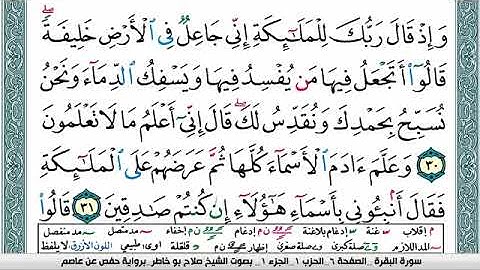 وَإِذْ قَالَ رَبُّكَ لِلْمَلَـٰٓئِكَةِ إِنِّى جَاعِلٌ فِى ٱلْأَرْضِ خَلِيفَةً ۖ
قَالُوٓا۟ أَتَجْعَلُ فِيهَا مَن يُفْسِدُ فِيهَا وَيَسْفِكُ ٱلدِّمَآءَ وَنَحْنُ
نُسَبِّحُ بِحَمْدِكَ وَنُقَدِّسُ لَكَ ۖ قَالَ إِنِّىٓ أَعْلَمُ مَا لَا تَعْلَمُونَ
٣٠ وَعَلَّمَ ءَادَمَ ٱلْأَسْمَآءَ كُلَّهَا ثُمَّ عَرَضَهُمْ عَلَى ٱلْمَلَـٰٓئِكَةِ
فَقَالَ أَنۢبِـُٔونِى بِأَسْمَآءِ هَـٰٓؤُلَآءِ إِن كُنتُمْ صَـٰدِقِينَ ٣١ قَالُوا۟
م إقلاب غنة إدغام إدغام بلاغنة مد متصل مد منفصل
المد اللازم صلة كبرى صلة صغرى إظهار قلقلة طبيعي اللون الأزرق لا يلفظ
سورة البقرة _ الصفحة ٦_ الحزب ١_ الجزء ١_ بصوت الشيخ صلاح بو خاطر_ برواية حفص عن عاصم